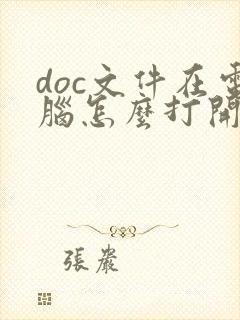 doc文件在電
腦怎麼打開
張嚴